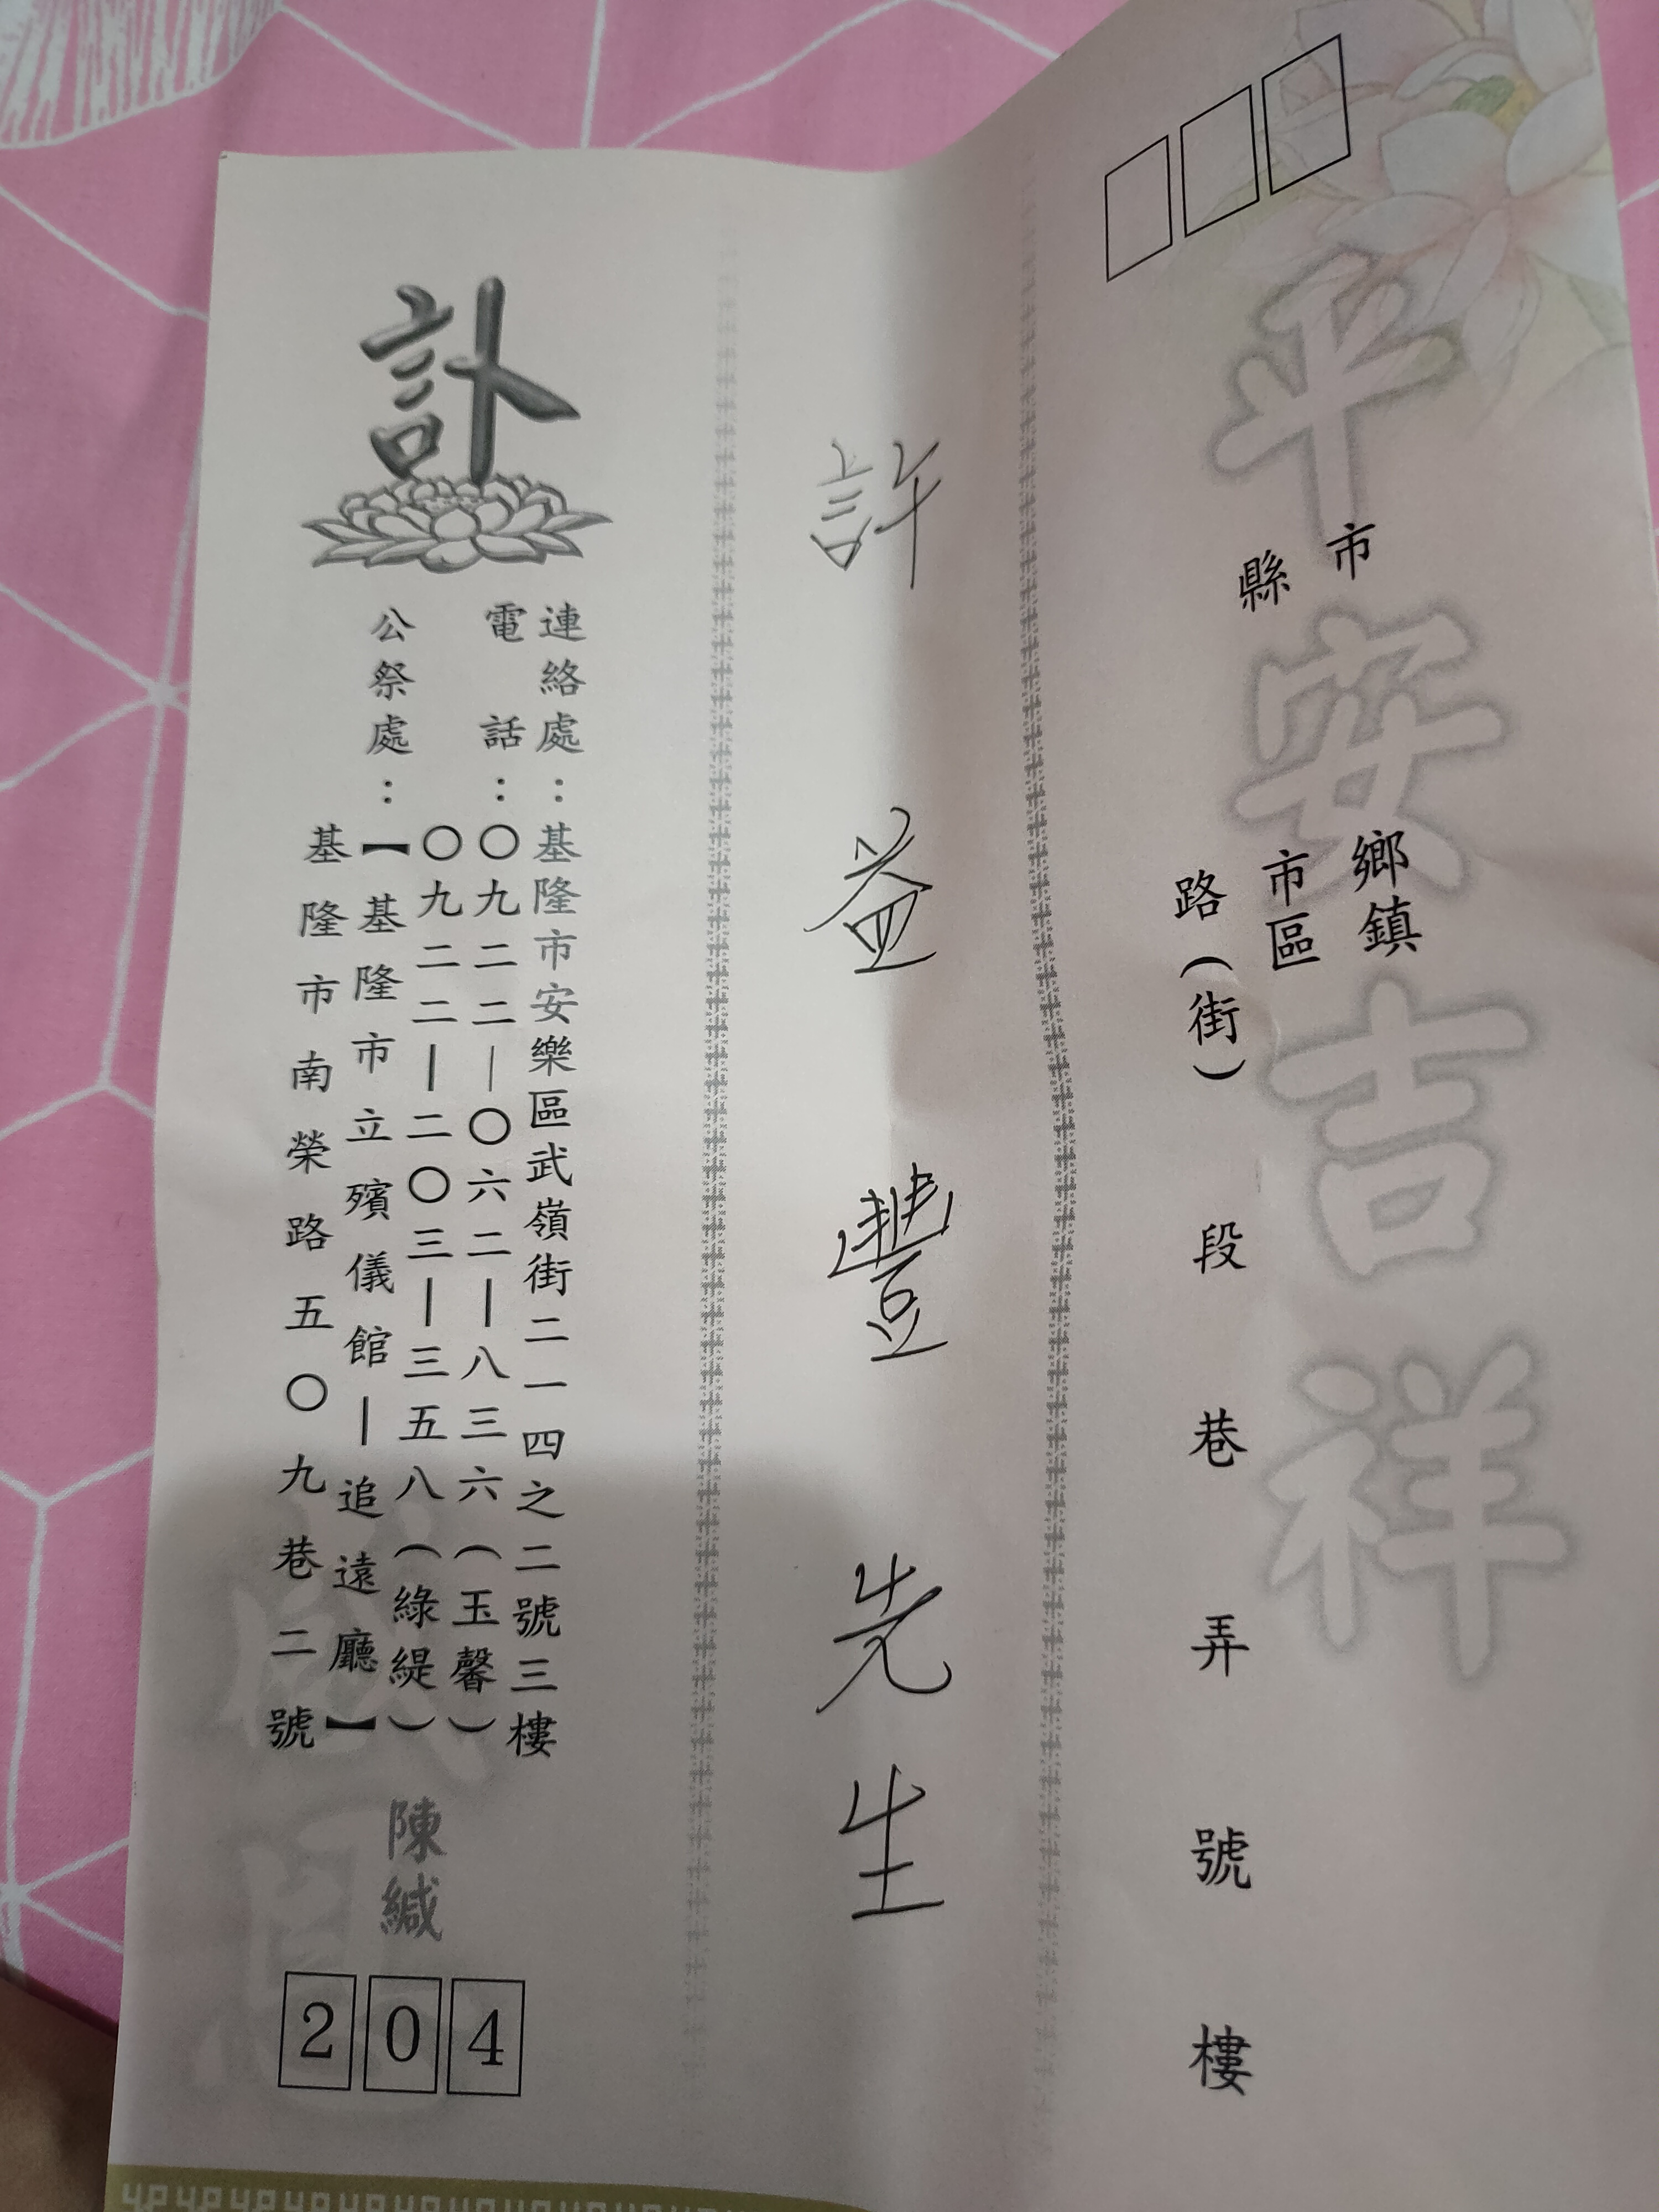 平安吉祥
市
縣
鄉鎮
市區
路(街)
段
巷
弄
號
樓
許益豐先生
訃
連絡處:基隆市安樂區武嶺街二一四之二號三樓
電話:〇九二二—〇六二—八三六(玉馨)
〇九二二—二〇三—三五八(綠緹)
公祭處:【基隆市立殯儀館—追遠廳】
基隆市南榮路五〇九巷二號
陳緘
204